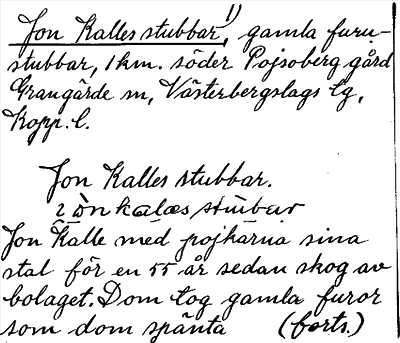 Jon Kalles stubbar,¹⁾ gamla furu-
stubbar, 1 km. söder Pojsoberg gård
Grangärde sn, Västerbergslags tg,
Kopp. l.
Jon Kalles stubbar.
kalæs
Jon Kalle med pojkarna sina
stal för en 55 år sedan skog av
bolaget. Dom tog gamla furor
som dom spänta (forts.)